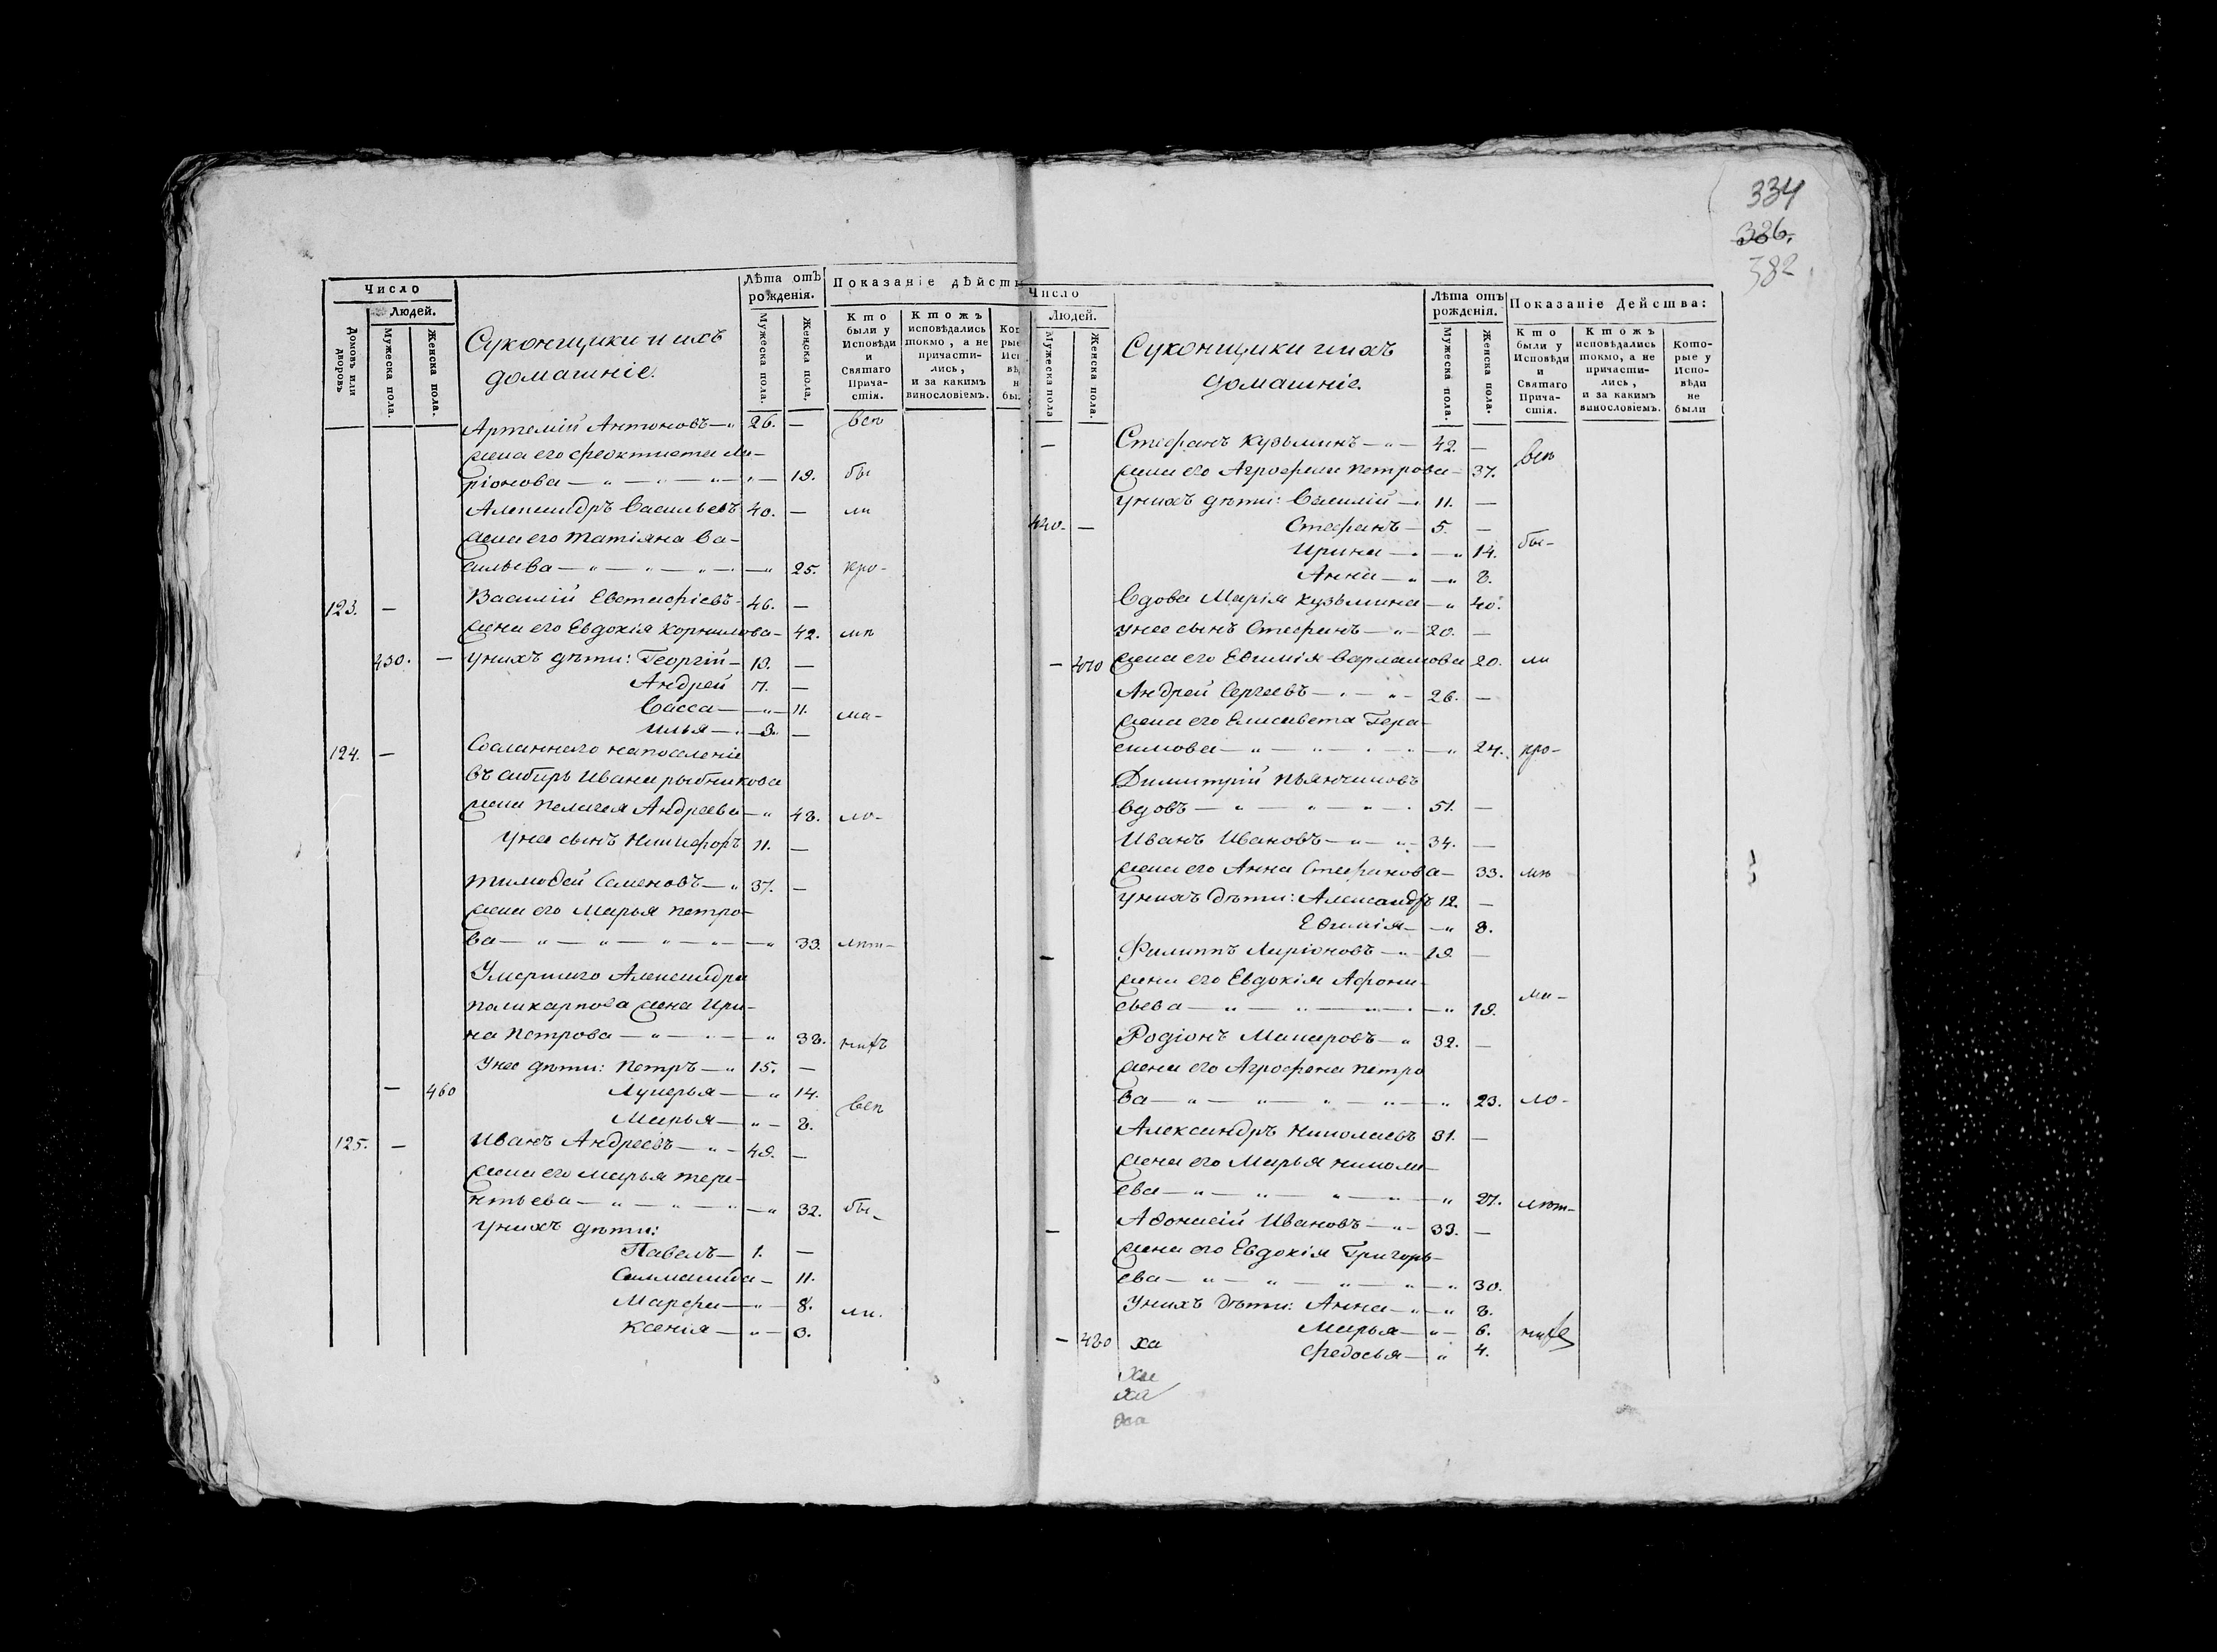 334
326.
382
Число
Людей.
Домовъ или дворовъ
Мужеска пола.
Женска пола.
Суконщики и ихъ
домашніе.
Лѣта отъ рожденія.
Мужеска пола.
Женска пола.
Показаніе дѣйств
Кто были у Исповѣди и Святаго Прича-стія.
Ктожъ исповѣдались токмо, а не причасти-лись, и за какимъ винословіемъ.
Артемій Антоновъ — 26. — всѣ
жена его Феоктиста Ла-
ріонова — 19. бы
Александръ Васильевъ 40. — ли
жена его Татіяна Ва-
сильева — 25. кро-
123. — Василій Евстафіевъ 46. —
жена его Евдокія Корнилова — 42. мѣ
450. — у нихъ дѣти: Георгій — 19. —
Андрей 7. —
Васса — 11. ма-
Илья — 3. —
124. — Сосланнаго на поселеніе
въ сибирь Ивана рыбникова
жена Пелагея Андреева — 48. ло-
у нея сынъ Никифоръ 11. —
Тимофей Семеновъ — 37. —
жена его Марья Петро-
ва — 33. лѣт-
Умершаго Александра
Поликарпова жена Ири-
на Петрова — 38. нихъ
У нее дѣти: Петръ — 15. —
— 460 Лукерья — 14.
Марья — 8. всѣ
125. — Иванъ Андреевъ — 49. —
жена его Марья Тере-
нтьева — 32. бы-
у нихъ дѣти:
Павелъ — 1. —
11.
Марфа — 8. ли.
Ксенія — 3.
Число
Людей.
Мужеска пола
Женска пола.
Суконщики и ихъ
домашніе.
Лѣта отъ рожденія.
Мужеска пола.
Женска пола.
Показаніе Действа:
Кто были у Исповѣди и Святаго Прича-стія.
Ктожъ исповѣдались токмо, а не причасти-лись, и за какимъ винословіемъ.
Кото-рые у Испо-вѣди не были
— Стефанъ Кузьминъ — 42. —
жена его Агрофена Петрова — 37. всѣ
у нихъ дѣти: Василій — 11. —
— Стефанъ — 5. —
Ирина — 14. бы-
Анна — 8.
Вдова Марія Кузьмина — 40.
у нее сынъ Стефанъ — 20. —
— 470 жена его Евфимія Варламова 20. ли
Андрей Сергеевъ — 26. —
жена его Елисавета Гера-
симова — 24. кро-
Димитрій
вдовъ — 51. —
Иванъ Ивановъ — 34. —
жена его Анна Стефанова — 33. мѣ
у нихъ дѣти: Александръ 12. —
Евфимія — 8.
— Филиппъ Ларіоновъ — 19. —
жена его Евдокія Афона-
сьева — 19. ма-
Родіонъ Макаровъ — 32. —
жена его Агрофена Петро
ва — 23. ло-
Александръ Николаевъ 31. —
жена его Марья Никола-
ева — 27. лѣт-
— Афонасій Ивановъ — 33. —
жена его Евдокія Григорь-
ева — 30.
У нихъ дѣти: Анна — 8.
Марья — 6. нихъ
— 480 ха Федосья — 4.
ха
ха